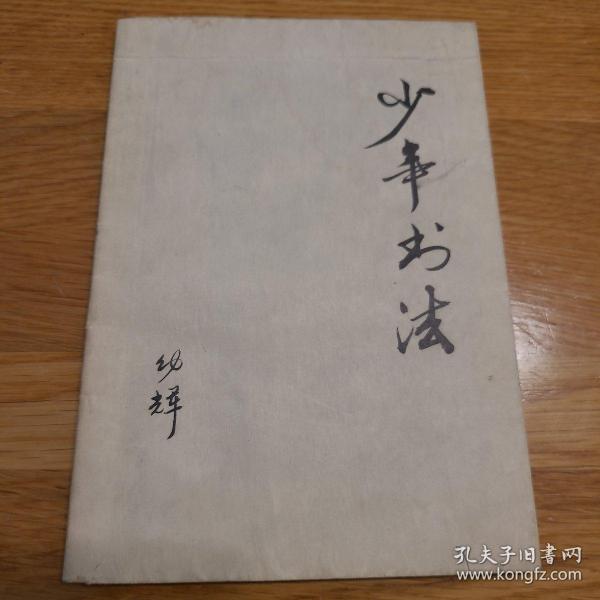 少年书法
幼辉
孔夫子旧書网
www.kongfz.com